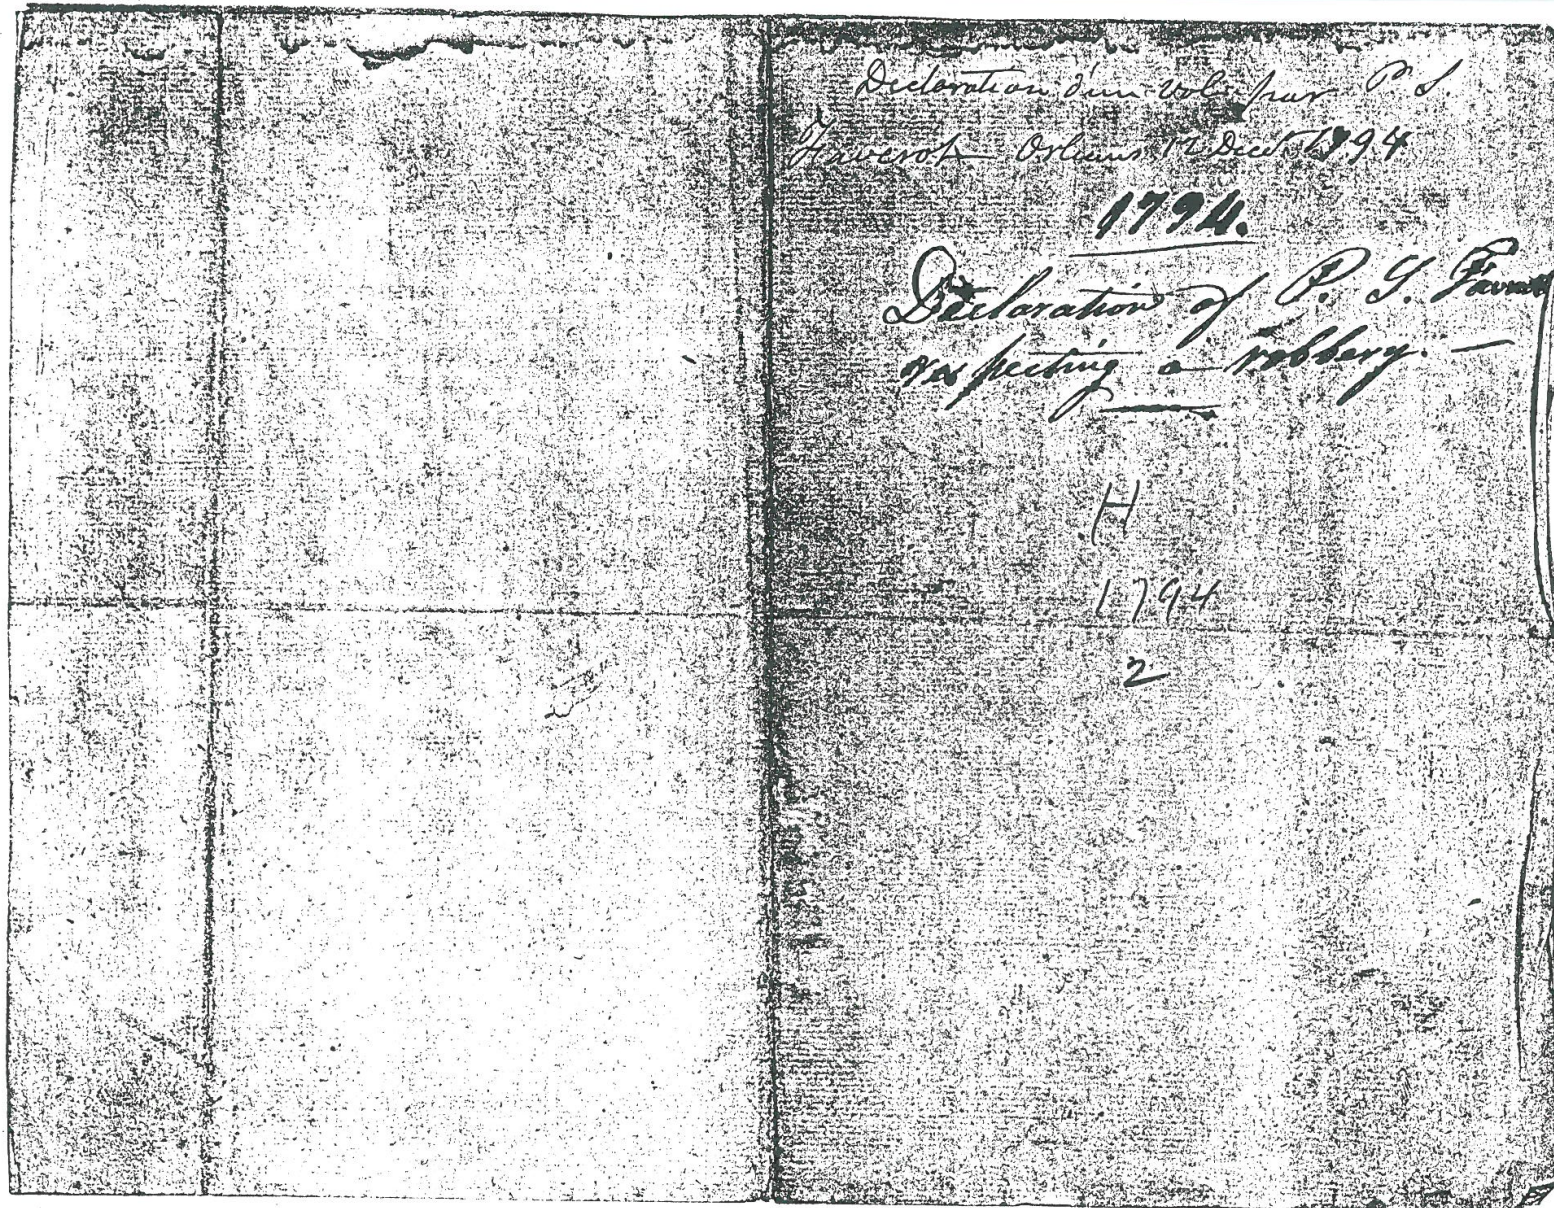 Declaration d'un vol par P. S.
Favrot Orleans 12 Decr 1794
1794.
Declaration of P. S. Favrot
respecting a robbery. —
H
1794
2